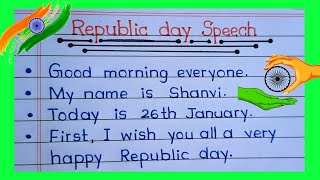 Republic day Speech
• Good morning everyone.
• My name is Shanvi.
• Today is 26th January.
• First, I wish you all a very
happy Republic day.